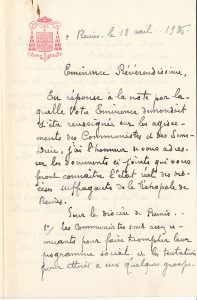 + Reims, le 18 avril. 1936.
Eminence Révérendissime,
En réponse à la note par la-
quelle Votre Eminence demandait
d'être renseignée sur les agisse-
ments des Communistes et des Sans-
Dieu, j'ai l'honneur de vous adres-
ser les documents ci-joints qui vous
feront connaître l'état réel des dio-
cèses suffragants de la Métropole de
Reims.
Pour le diocèse de Reims..
1°/ Les Communistes ont assez re-
muants pour faire triompher leur
programme social, et la tentative
pour attirer à eux quelques groupe-